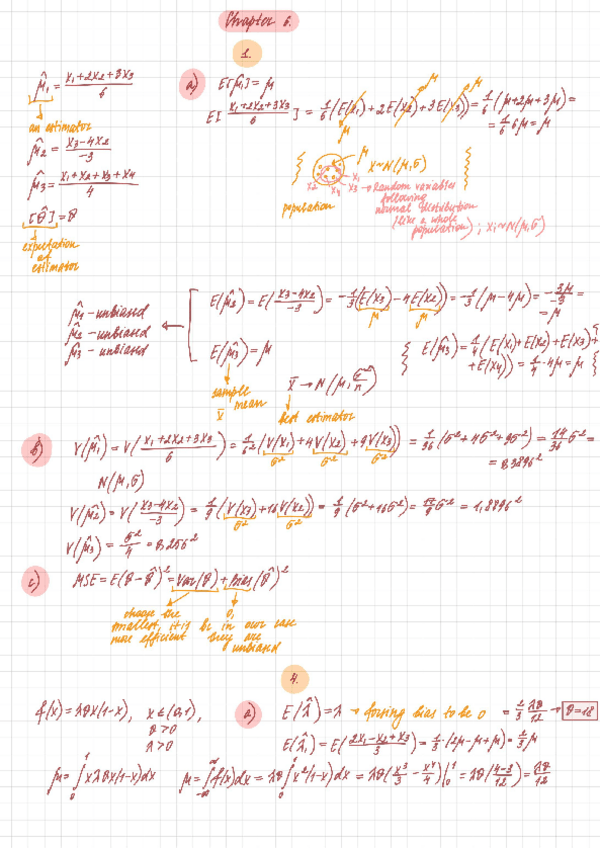 Chapter 6.
1.
μ̂₁ = (x₁+2x₂+3x₃)/6
an estimator
μ̂₂ = (x₃-4x₂)/-3
μ̂₃ = (x₁+x₂+x₃+x₄)/4
E[θ̂] = θ
expectation
of
estimator
a) E[μ̂₁] = μ
E[(x₁+2x₂+3x₃)/6] = 1/6 (E(x₁) + 2E(x₂) + 3E(x₃)) = 1/6 (μ+2μ+3μ) =
= 1/6 6μ = μ
μ μ μ
μ x~N(μ,σ)
x₂ x₁ x₄ x₃ → Random variables
following
normal distribution
(like a whole
population) ; xᵢ~N(μ,σ)
population
μ̂₁ - unbiased
μ̂₂ - unbiased
μ̂₃ - unbiased
E(μ̂₂) = E((x₃-4x₂)/-3) = -1/3 (E(x₃) - 4E(x₂)) = -1/3 (μ-4μ) = -3μ/-3 =
μ μ = μ
E(μ̂₃) = μ
E(μ̂₃) = 1/4 (E(x₁)+E(x₂)+E(x₃)+
+E(x₄)) = 1/4 · 4μ = μ
sample
x̄ mean
x̄ → N(μ, σ²/n)
best estimator
b) V(μ̂₁) = V((x₁+2x₂+3x₃)/6) = 1/6² (V(x₁) + 4V(x₂) + 9V(x₃)) = 1/36 (σ²+4σ²+9σ²) = 14/36 σ² =
σ² σ² σ² = 0,389σ²
N(μ,σ)
V(μ̂₂) = V((x₃-4x₂)/-3) = 1/9 (V(x₃) + 16V(x₂)) = 1/9 (σ²+16σ²) = 17/9 σ² = 1,889σ²
σ² σ²
V(μ̂₃) = σ²/4 = 0,25σ²
c) MSE = E(θ-θ̂)² = Var(θ̂) + bias(θ̂)²
choose the
smallest, it'll be
more efficient
0,
in our case
they are
unbiased
4.
f(x) = λθx(1-x), x∈(0,1),
θ>0
λ>0
a) E(λ̂) = λ → forsing bias to be 0 = 2/3 λθ/12 → θ=18
E(λ̂₁) = E((2x₁-x₂+x₃)/3) = 1/3 (2μ-μ+μ) = 2/3 μ
μ = ∫₀¹ xλθx(1-x)dx
μ = ∫₋∞^∞ f(x)dx = λθ ∫₀¹ x²(1-x)dx = λθ (x³/3 - x⁴/4)|₀¹ = λθ ((4-3)/12) = λθ/12